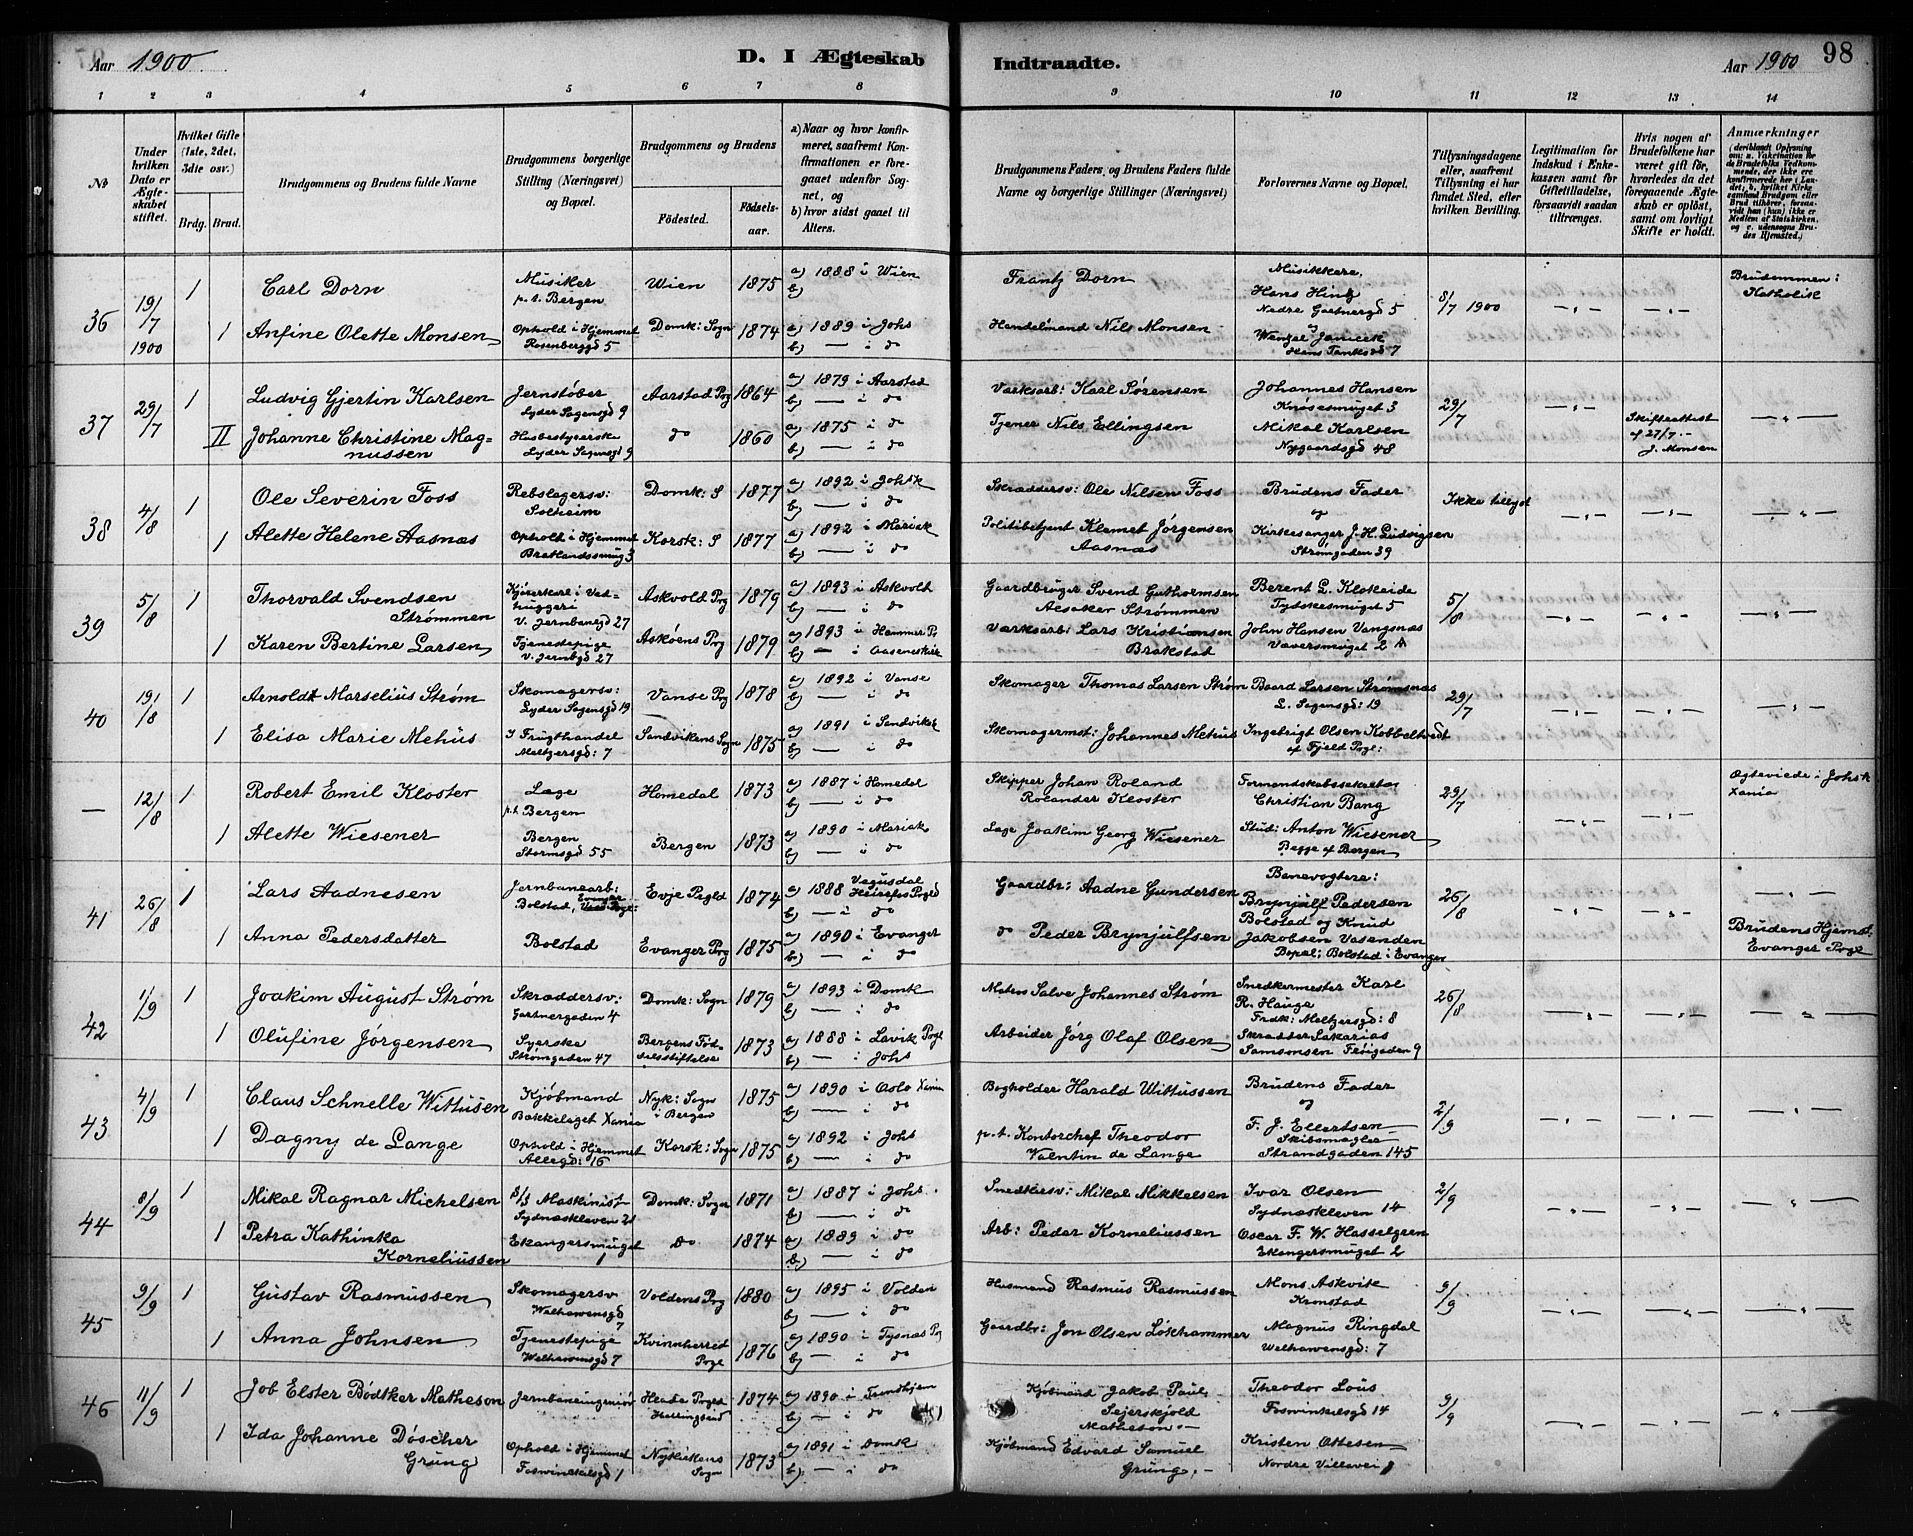 Aar 1900.
D. I Ægteskab Indtraadte.
Aar 1900
98
1 2 3 4 5 6 7 8 9 10 11 12 13 14
№
Under hvilken Dato er Ægteskabet stiftet.
Hvilket Gifte (1ste, 2det, 3die osv.)
Brdg. Brud.
Brudgommens og Brudens fulde Navne
Brudgommens borgerlige Stilling (Næringsvei) og Bopæl.
Brudgommens og Brudens
Fødested.
Fødselsaar.
a) Naar og hvor konfirmeret, saafremt Konfirmationen er foregaaet udenfor Sognet, og
b) hvor sidst gaaet til Alters.
Brudgommens Faders, og Brudens Faders fulde Navne og borgerlige Stillinger (Næringsvei)
Forlovernes Navne og Bopæl.
Tillysningsdagene eller, saafremt Tillysning ei har fundet Sted, efter hvilken Bevilling.
Legitimation for Indskud i Enkekassen samt for Giftetilladelse, forsaavidt saadan tiltrænges.
Hvis nogen af Brudefolkene har været gift før, hvorledes da det foregaaende Ægteskab er opløst, samt om lovligt Skifte er holdt.
Anmærkninger (deriblandt Oplysning om: a. Vakcination for de Brudefolks Vedkommende, der ikke ere konfirmerede her i Landet; b. hvilket Kirkesamfund Brudgom eller Brud tilhører, forsaavidt han (hun) ikke er Medlem af Statskirken, og c. udensogns Brudes Hjemsted.)
36 19/7 1900 1 Carl Dorn Musiker p.t. Bergen Wien 1875 a) 1888 i Wien b) Frantz Dorn Musikkere, Hans Hintz Nedre Gartnergd 5 8/7 1900 —„— —„— Brudemmen: Katholik
1 Anfine Olette Monsen Ophold i Hjemmet Rosenberggd 5 Domk: Sogn 1874 a) 1889 i Johs b) — i do Handelmand Nils Monsen og Wenzel Janicek Hans Tanksgd 7
37 29/7 1 Ludvig Gjertin Karlsen Jernstøber Lyder Sagensgd 9 Aarstad Pg 1864 a) 1879 i Aarstad b) — i do Værksarb: Karl Sørensen Johannes Hansen Knøsesmuget 3 29/7 —„— Skifteattest af 27/7. — J. Monsen —„—
II Johanne Christine Magnussen Husbestyrerske Lyder Sagensgd 9 do 1860 a) 1875 i do b) — i do Tjener Nils Ellingsen Mikal Karlsen Nygaardsgd 48
38 4/8 1 Ole Severin Foss Rebslagersv: Solheim Domk: S 1877 a) 1892 i Johsk b) — i do Skræddersv: Ole Nilsen Foss Brudens Fader Ikke tillyst —„— —„— —„—
1 Alette Helene Aasnæs Ophold i Hjemmet Bratlandssmug 3 Korsk: S 1877 a) 1892 i Mariak b) — i do Politibetjent Klemet Jørgensen Aasnæs og Kirkesanger J. H. Ludvigsen Strømgaden 39
39 5/8 1 Thorvald Svendsen Strømmen Kjørerkarl i Vedhuggeri V. Jernbanegd 27 Askvold Pg 1879 a) 1893 i Askvold b) — i do Gaardbruger Svend Guthormsen Aesaker Strømmen Berent L. Klokeide Tydskesmuget 5 5/8 —„— —„— —„—
1 Karen Bertine Larsen Tjenestepige V. Jernbgd 27 Askøens Pg 1879 a) 1893 i Hammer P b) — i Aasenekirk Værksarb: Lars Kristiansen Brakstad John Hansen Vangsnæs Væversmuget 2 A
40 19/8 1 Arnoldt Marselius Strøm Skomagersv: Lyder Sagensgd 19 Vanse Pg 1878 a) 1892 i Vanse b) — i do Skomager Thomas Larsen Strøm Baard Larsen Strømsnæs L. Sagensgd: 19 29/7 —„— —„— —„—
1 Elisa Marie Mehus I Frugthandel Meltzersgd: 7 Sandvikens Sogn 1875 a) 1891 i Sandvikek b) — i do Skomagermst: Johannes Mehus Ingebrigt Olsen Kobbeltvedt af Fjeld Pgl:
— 12/8 1 Robert Emil Kloster Læge p.t. Bergen Homedal 1873 a) 1887 i Homedal b) — i do Skipper Johan Roland Rolander Kloster Formandskabssekretær Christian Bang 29/7 —„— —„— Ægteviede i Johsk Xania
1 Alette Wiesener Bergen Stormsgd 55 Bergen 1873 a) 1890 i Mariak b) — i do Læge Joakim Georg Wiesener Stud: Anton Wiesener Begge af Bergen
41 26/8 1 Lars Aadnesen Jernbanearb: Bolstad, Evanger Evje Prgld 1874 a) 1888 Vegusdal Herefos Pgld b) — i do Gaardbr: Aadne Gundersen Benevogtere: Brynjulf Pedersen Bolstad og Knud 26/8 —„— —„— —„—
1 Anna Pedersdatter Bolstad Evanger Pg 1875 a) 1890 i Evanger b) — i do do Peder Brynjulfsen Jakobsen Vasenden Bopæl; Bolstad i Evanger Brudens Hjemst: Evanger Pgl
42 1/9 1 Joakim August Strøm Skræddersv: Gartnergaden 4 Domk: Sogn 1879 a) 1893 i Domk b) — i do Matros Salve Johannes Strøm Snedkermester Karl R. Hauge Fredk: Meltzersgd: 8 26/8 —„— —„— —„—
1 Olufine Jørgensen Syerske Strømgaden 47 Bergens Fødselsstiftelse 1873 a) 1888 i Lavik Pgl b) — i Johs Arbeider Jørg Olaf Olsen Skrædder Sakarias Samsonsen Frøigaden 9
43 4/9 1 Claus Schnelle Wittusen Kjøbmand Bakkelaget Xania Nyk: Sogn i Bergen 1875 a) 1890 i Oslo Xania b) — i do Bogholder Harald Wittussen Brudens Fader 2/9 —„— —„— —„—
1 Dagny de Lange Ophold i Hjemmet Allegd: 16 Korsk: Sogn 1875 a) 1892 i Johs b) — i do p.t. Kontorchef Theodor Valentin de Lange og F. J. Ellertsen Skibsmægler Strandgaden 145
44 8/9 1 Mikal Ragnar Michelsen S/S Maskinist Sydnæskleven 21 Domk: Sogn 1871 a) 1887 i Johs b) — i do Snedkersv: Mikal Mikkelsen Ivar Olsen Sydnæskleven 14 2/9 —„— —„— —„—
1 Petra Kathinka Korneliussen Ekangersmuget 1 do 1874 a) 1889 i do b) — i do Arb: Peder Korneliussen Oscar F. W. Hasselgren Ekangersmuget 2
45 9/9 1 Gustav Rasmussen Skomagersv Welhavensgd 7 Voldens Pg 1880 a) 1895 i Volden b) — i do Husmand Rasmus Rasmussen Mons Askvik Kronstad 9/9 —„— —„— —„—
1 Anna Johnsen Tjenestepige Welhavensgd 7 Kvinnherred Pgl 1876 a) 1890 i Tysnæs Pg b) — i do Gaardbr: Jon Olsen Løkhammer Magnus Ringdal Welhavensgd: 7
46 11/9 1 Job Elster Bødtker Matheson Jernbaneingeniør Hegde Pgld 1874 a) 1890 i Trondhjem b) — i do Kjøbmand Jakob Paul Sejerskjold Matheson Theodor Lous Fosswinkelsgd 14 9/9 —„— —„— —„—
1 Ida Johanne Döscher Grung Ophold i Hjemmet Foswinkelsgd 1 Nykirkens Sogn 1873 a) 1891 i Domk b) — i do Kjøbmand Edvard Samuel Grung Kristen Ottesen Nordre Villavei 8